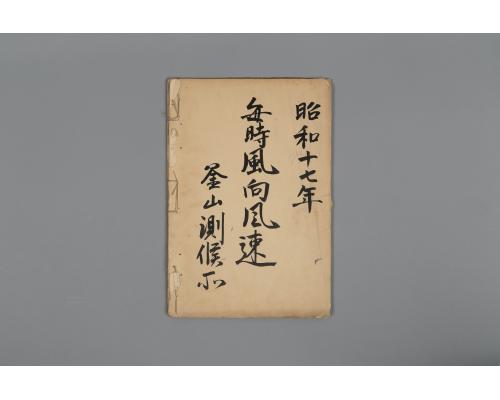 昭和十七年
毎時風向風速
釜山測候所